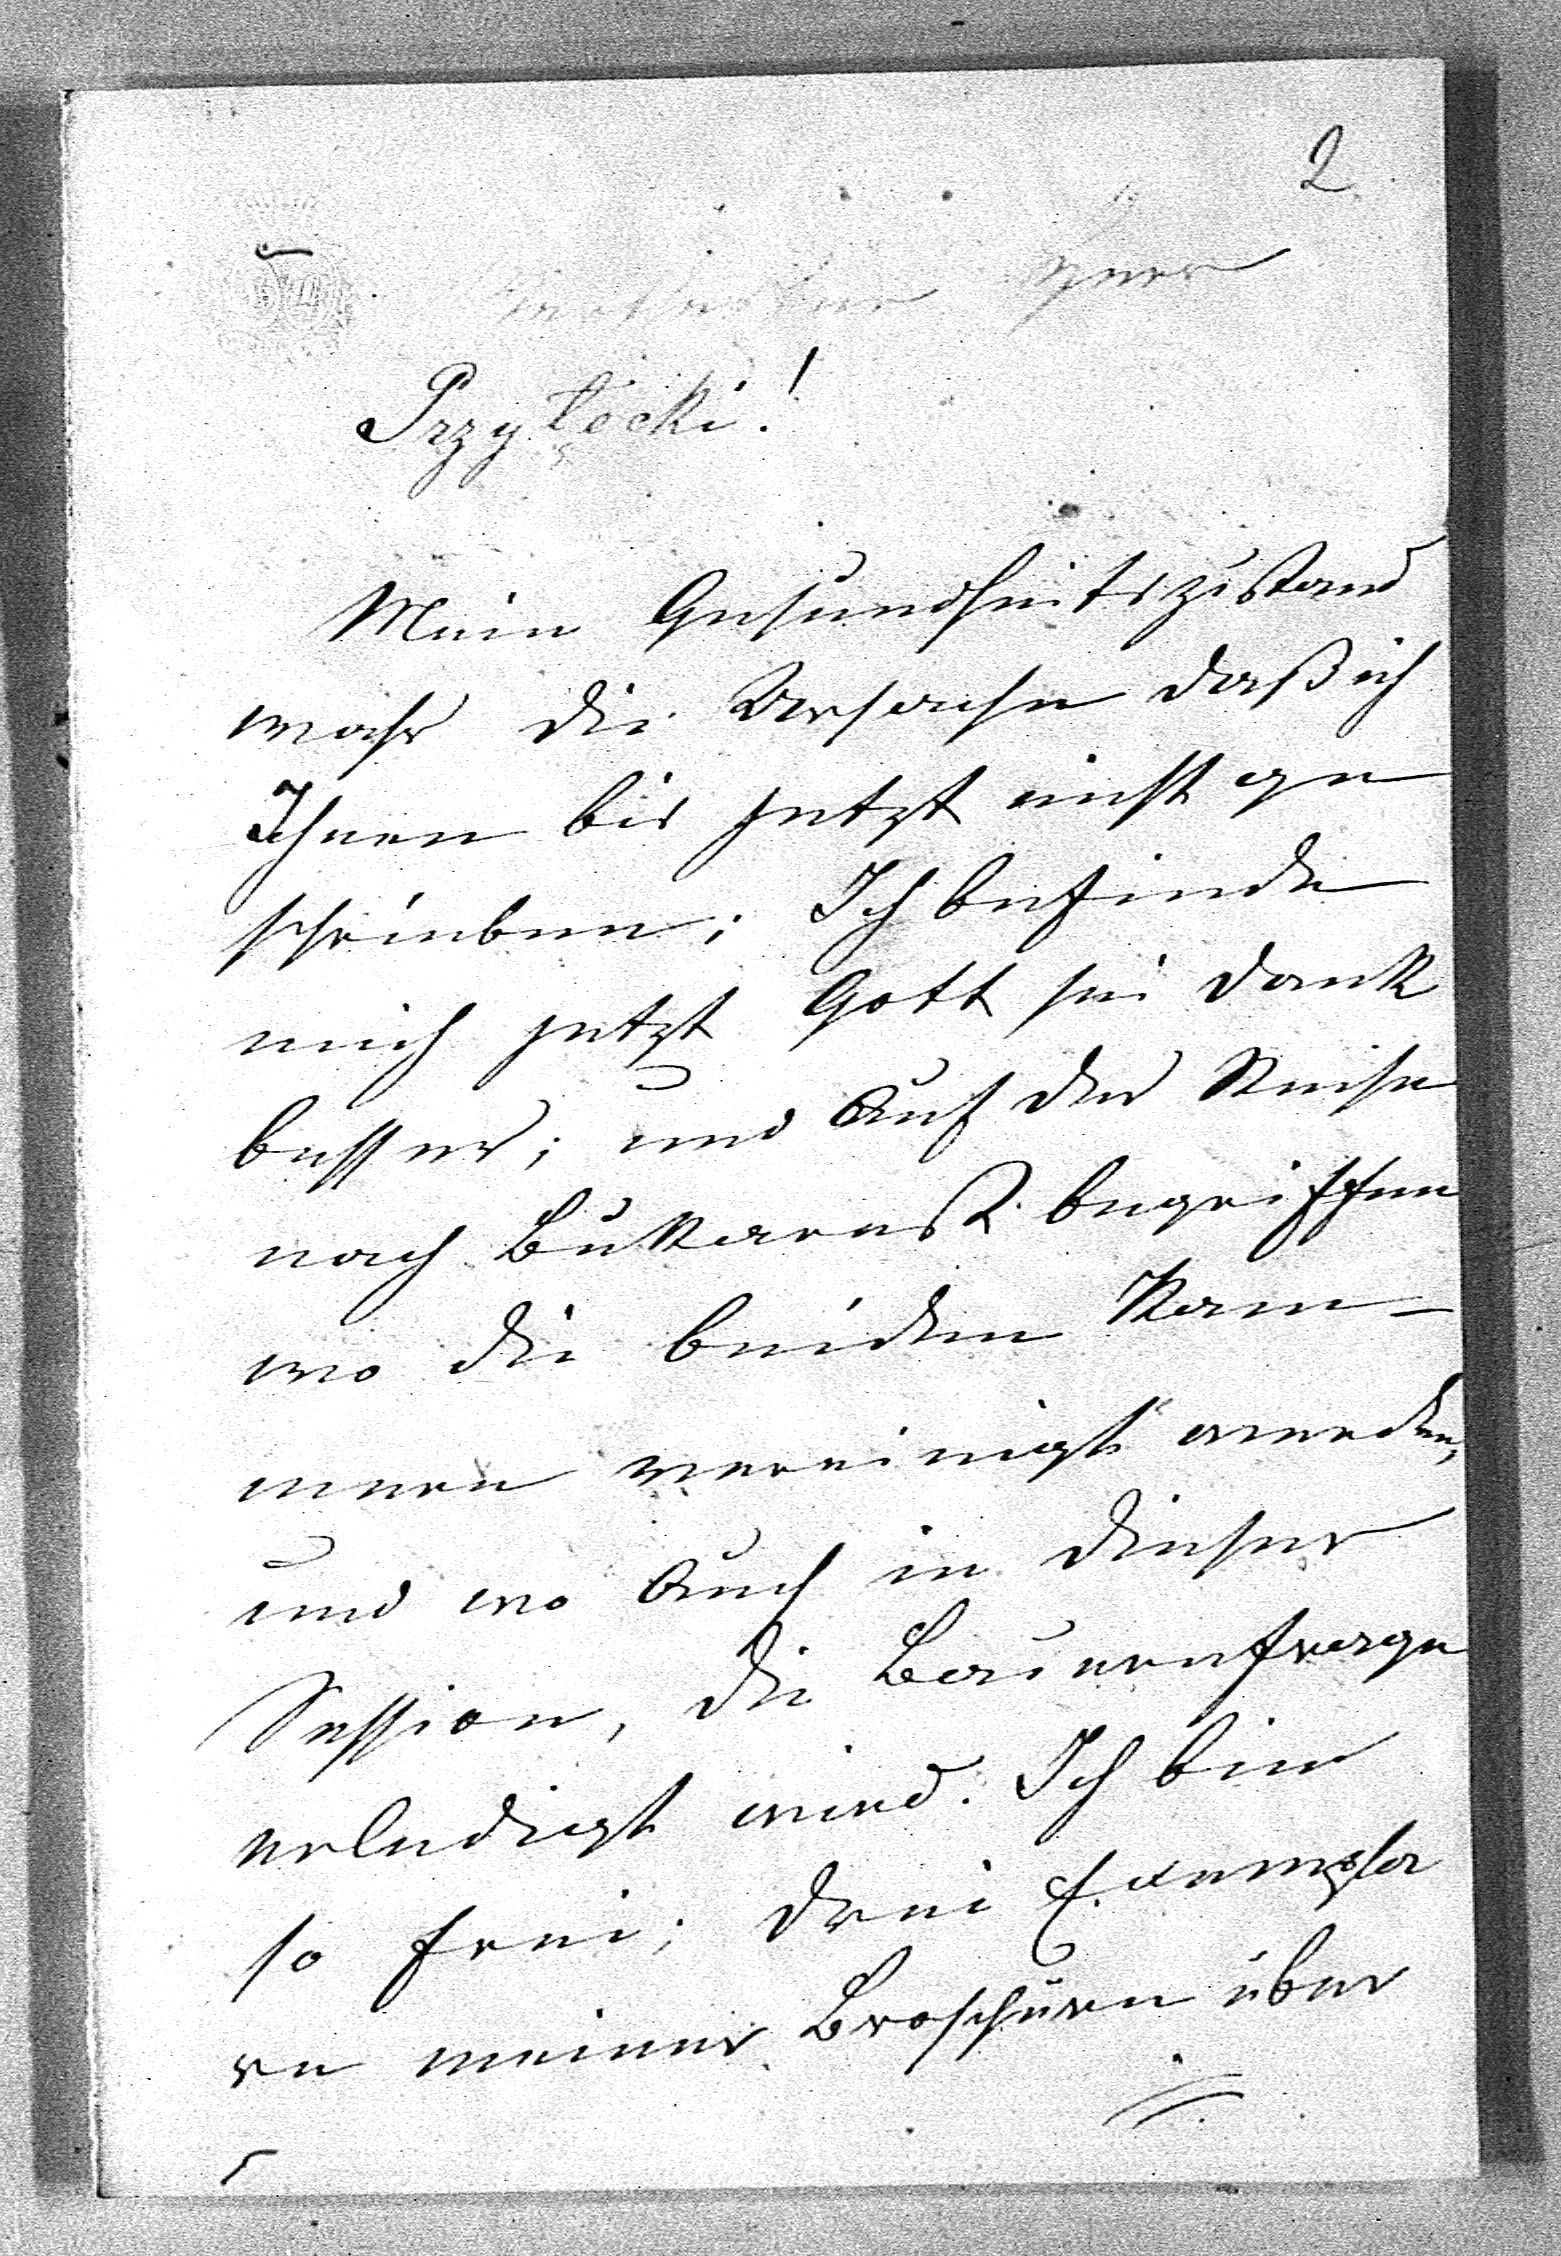 2
Herr
Przyłęcki!
Mein Gesundheitszustand
wahr die Ursache daß ich
Ihnen bis jetzt nicht ge
schrieben; Ich befinde
mich jetzt Gott sei Dank
besser; und auf der Reise
nach Bukarest begriffen
wo die beiden Kam-
mern vereinigt werden,
und wo auch in dieser
Session, die Bauernfrage
erledigt wird. Ich bin
so frei; drei Exempla
re meiner Broschüre über